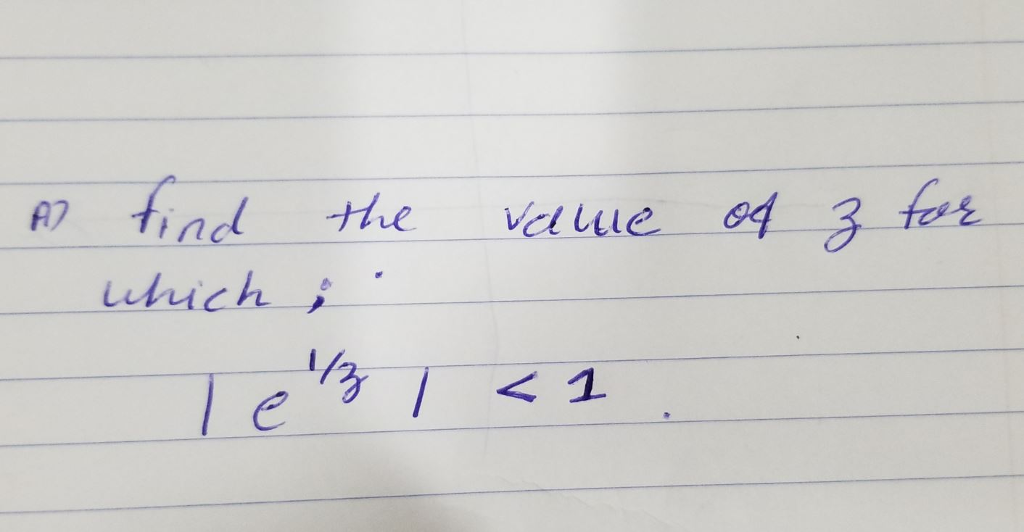 A) find the value of z for
which ;
| e^{1/z} | < 1 .